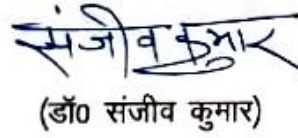 संजीव कुमार
(डॉ0 संजीव कुमार)